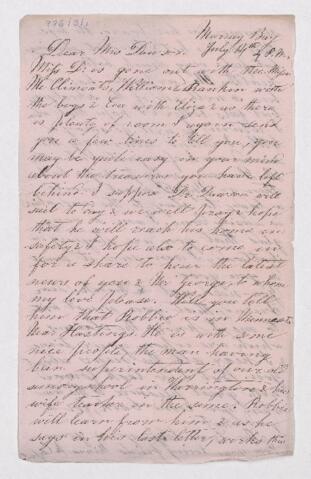 Murray Bay
July 14th 4 P.M.
Dear Mrs Dawson
Miss D. is gone out with the Misses
Mc Climonts, William & Rankin with
the boys & Eva with Eliza as there
is plenty of room I again send
you a few lines to tell you, you
may be quite easy in your mind
about the treasures you have left
behind. I suppose Dr Dawson will
sail to day & we will pray & hope
that he will reach his home in
safety & I hope also to come in
for a share to hear the latest
news of you & Mr George, to whom
my love please. Will you tell
him that Robbie is in Minnesota
Near Hastings. He is with some
nice people, the man having
been superintendent of our old
sunday school in Warrington & his
wife teacher in the same. Robbie
will learn from him & as he
says in his last letter, works this